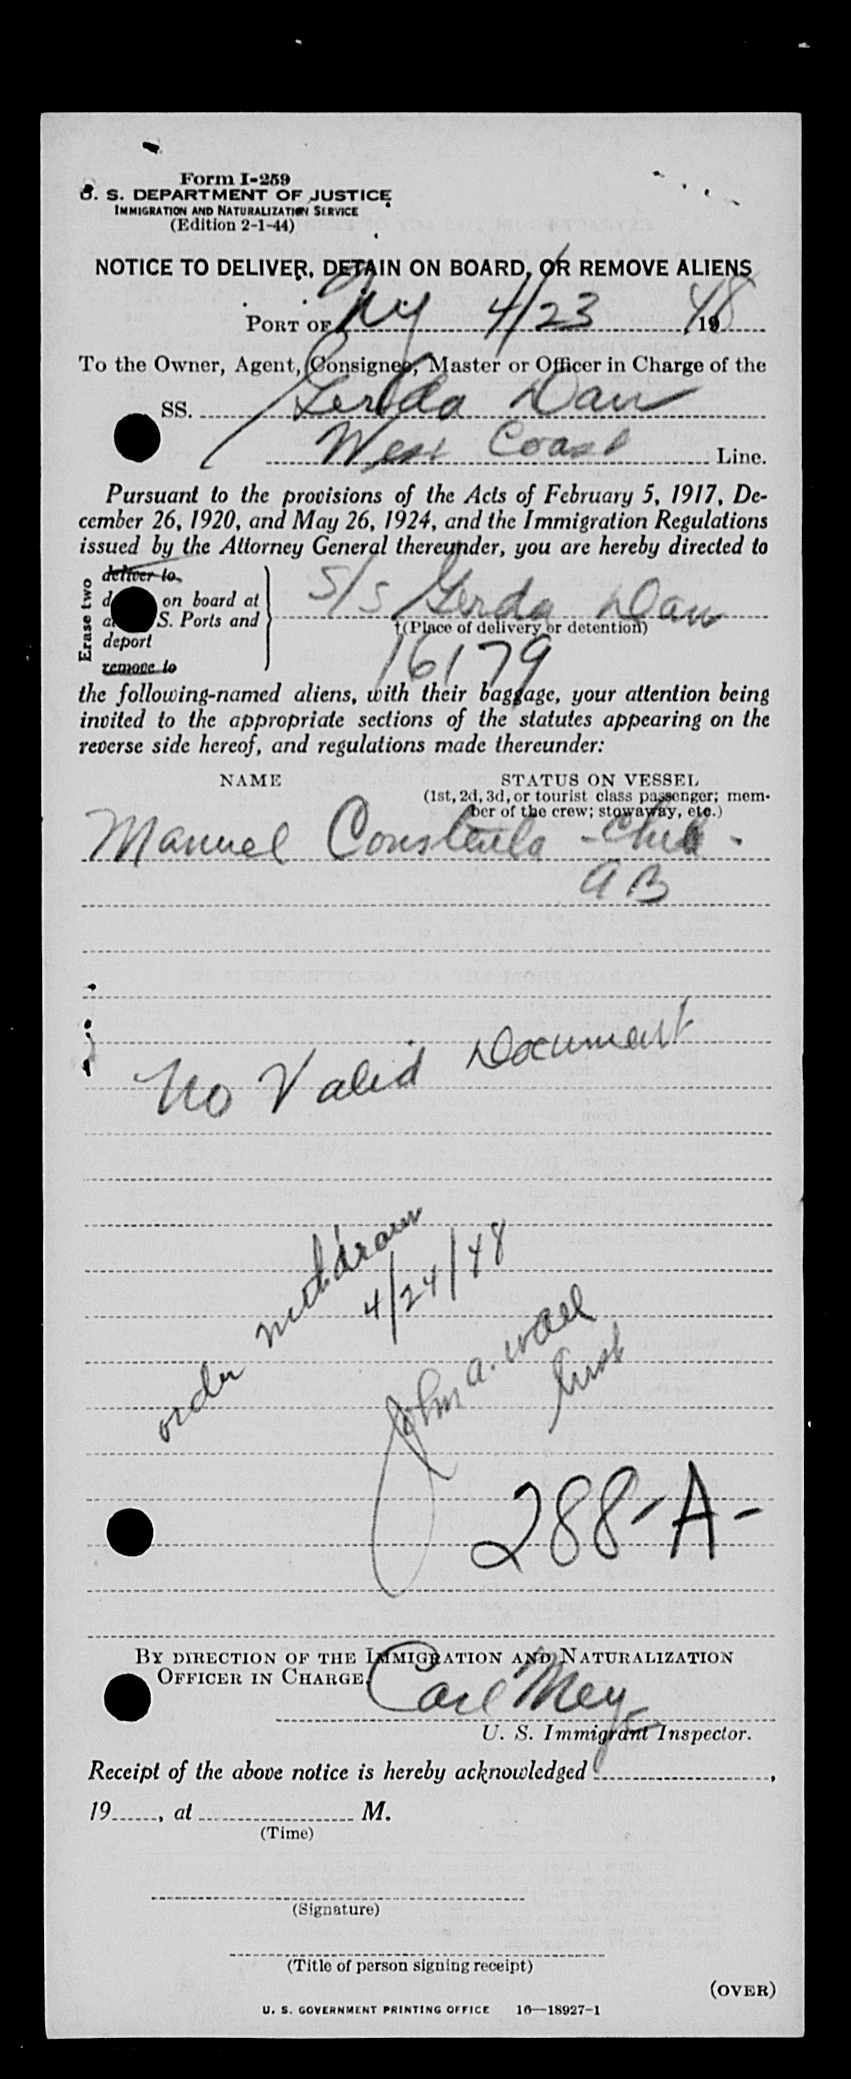 Form I-259
U. S. DEPARTMENT OF JUSTICE
IMMIGRATION AND NATURALIZATION SERVICE
(Edition 2-1-44)
NOTICE TO DELIVER, DETAIN ON BOARD, OR REMOVE ALIENS
PORT OF NY 4/23, 1948
To the Owner, Agent, Consignee, Master or Officer in Charge of the
SS. Gerda Dan
West Coast Line.
Pursuant to the provisions of the Acts of February 5, 1917, De-
cember 26, 1920, and May 26, 1924, and the Immigration Regulations
issued by the Attorney General thereunder, you are hereby directed to
Erase two
deliver to
on board at
S. Ports and
deport
remove to
S/S Gerda Dan
†(Place of delivery or detention)
16179
the following-named aliens, with their baggage, your attention being
invited to the appropriate sections of the statutes appearing on the
reverse side hereof, and regulations made thereunder:
NAME STATUS ON VESSEL
(1st, 2d, 3d, or tourist class passenger; mem-
ber of the crew; stowaway, etc.)
Manuel
AB
No Valid Document
order withdrawn
4/24/48
John A. Wall
Insp
288-A-
BY DIRECTION OF THE IMMIGRATION AND NATURALIZATION
OFFICER IN CHARGE.
Carl
U. S. Immigrant Inspector.
Receipt of the above notice is hereby acknowledged ,
19 , at M.
(Time)
(Signature)
(Title of person signing receipt)
(OVER)
U. S. GOVERNMENT PRINTING OFFICE 16—18927-1